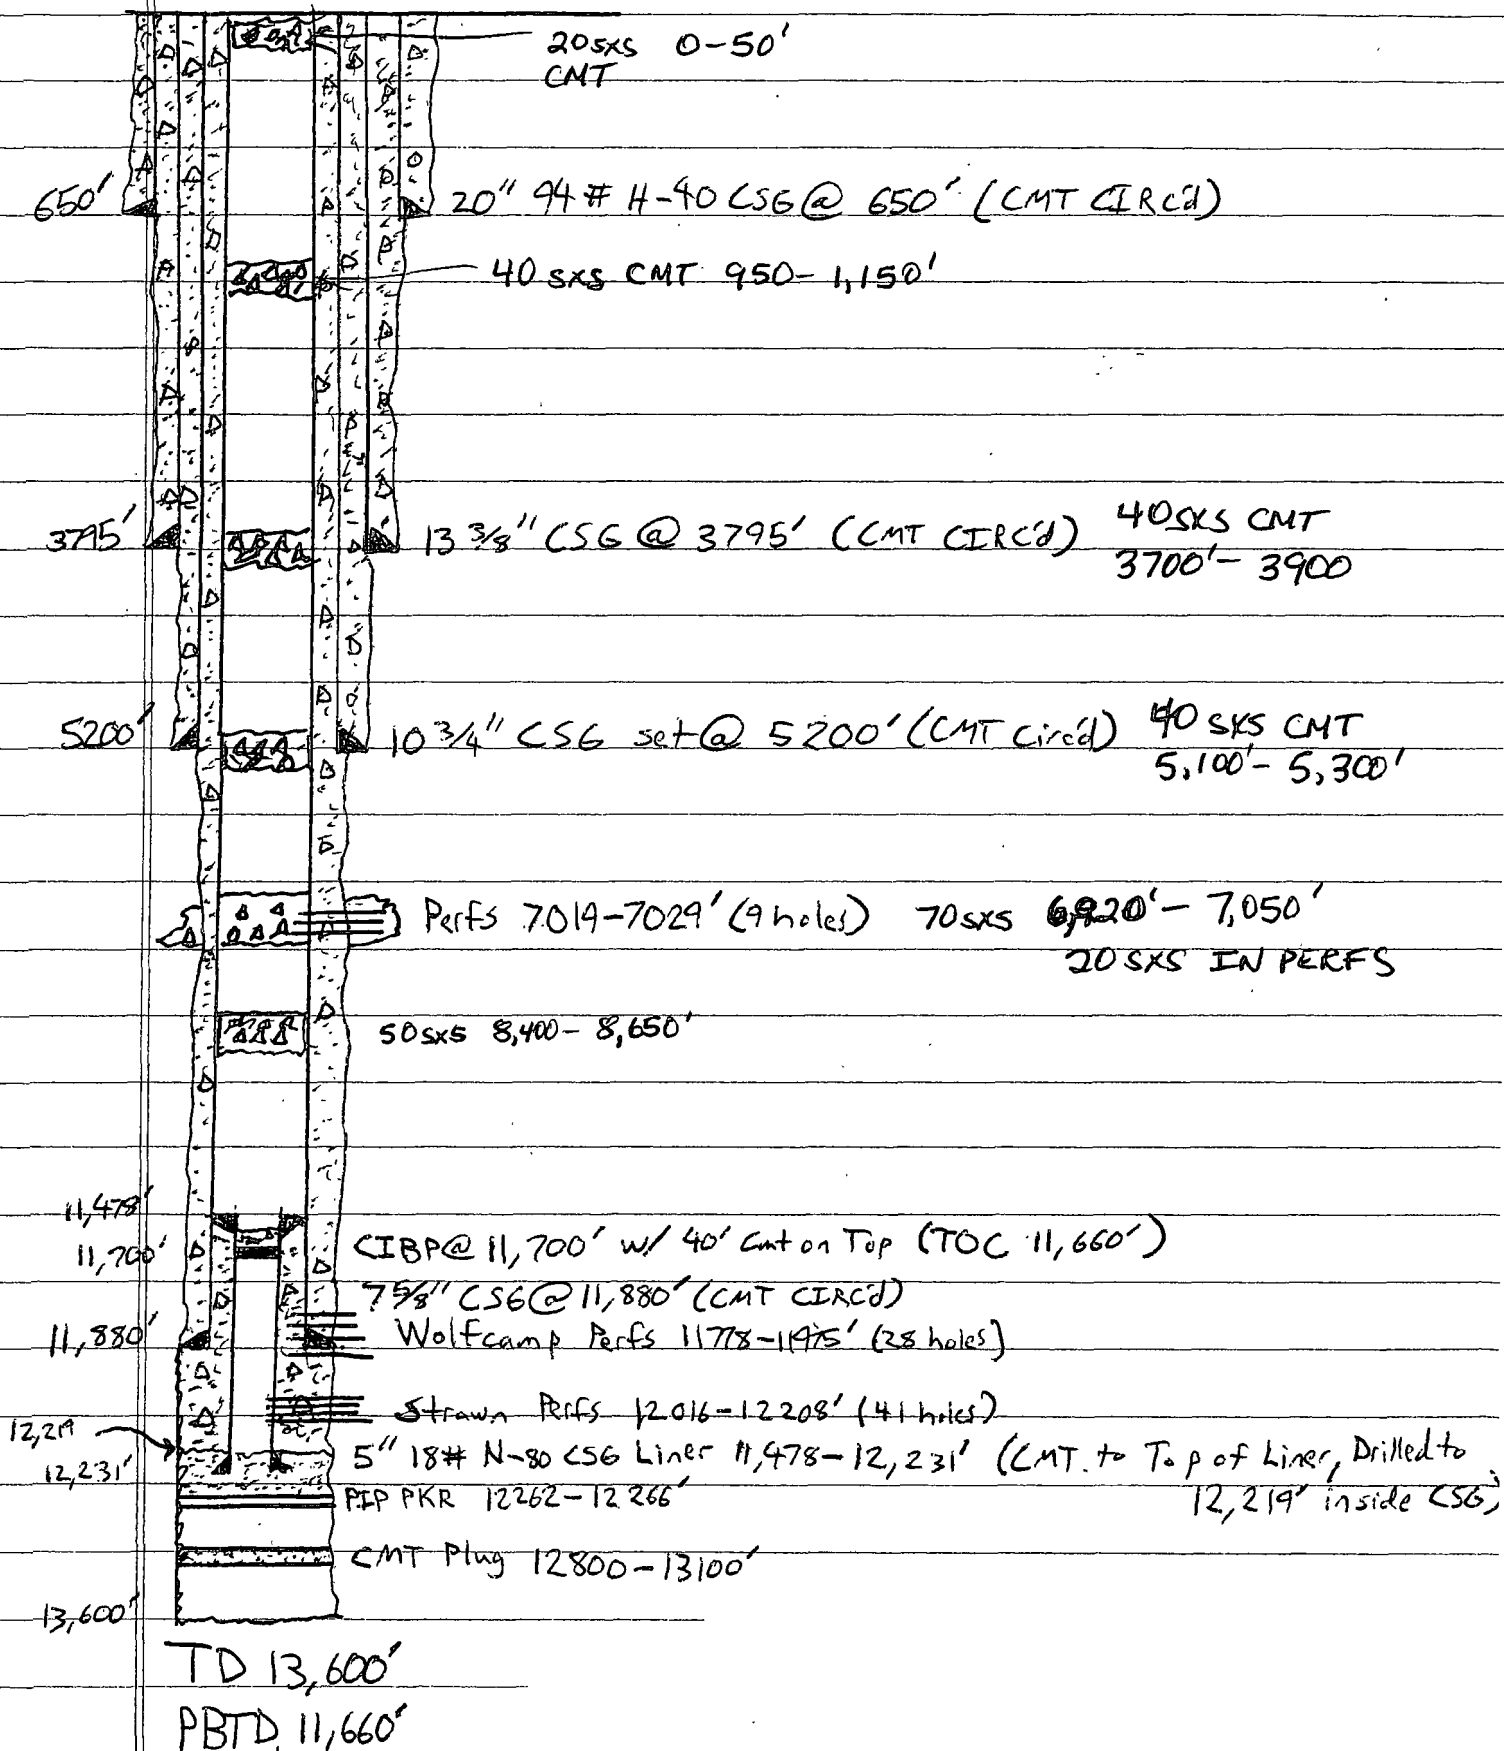 20 sxs 0-50'
CMT
650' 20" 94# H-40 CSG @ 650' (CMT CIRC'd)
40 sxs CMT 950-1,150'
3795' 13 3/8" CSG @ 3795' (CMT CIRC'd) 40 SXS CMT
3700'-3900
5200' 10 3/4" CSG set @ 5200' (CMT Circ'd) 40 SXS CMT
5,100'-5,300'
Perfs 7019-7029' (9 holes) 70 sxs 6,920'-7,050'
20 SXS IN PERFS
50 sxs 8,400-8,650'
11,478'
11,700' CIBP @ 11,700' w/ 40' Cmt on Top (TOC 11,660')
7 5/8" CSG @ 11,880' (CMT CIRC'd)
11,880' Wolfcamp Perfs 11778-11975' (28 holes)
Strawn Perfs 12016-12208' (41 holes)
12,219
12,231' 5" 18# N-80 CSG Liner 11,478-12,231' (CMT. to Top of Liner, Drilled to
12,219' inside CSG)
PIP PKR 12262-12266'
CMT Plug 12800-13100'
13,600'
TD 13,600'
PBTD 11,660'